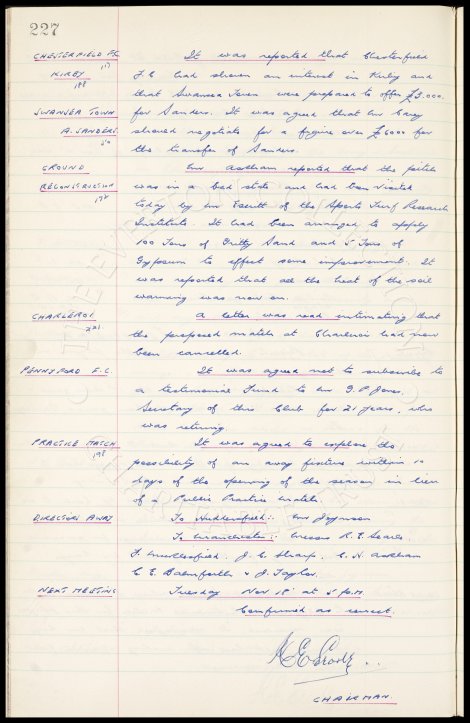 227
CHESTERFIELD F.C. It was reported that Chesterfield
KIRBY F.C had shown an interest in Kirby and
188
that Swansea Town were prepared to offer £3.000
SWANSEA TOWN for Sanders. It was agreed that Mr Carey
A. SANDERS should negotiate for a figure over £6000 for
the transfer of Sanders.
GROUND Mr Askham reported that the pitch
RECONSTRUCTION was in a bad state and had been visited
today by Mr Escritt of the Sports Turf Research
Institute. It had been arranged to apply
100 Tons of Gritty Sand and 5 Tons of
Gypsum to effect some improvement. It
was reported that all the heat of the soil
warming was now on.
CHARLEROI A letter was read intimating that
221
the proposed match at Charleroi had now
been cancelled.
PENNYFORD F.C. It was agreed not to subscribe to
a testimonial Fund to Mr G. P. Jones,
Secretary of this Club for 21 years, who
was retiring.
PRACTICE MATCH It was agreed to explore the
198
possibility of an away fixture within 10
days of the opening of the season in lieu
of a Public Practice Match.
DIRECTORS AWAY To Huddersfield:. Mr Joynson
To Manchester:: Messrs R. E. Searle.
F. Micklesfield, J. C. Sharp, C. H. Askham
C. E. Balmforth & J. Taylor.
NEXT MEETING Tuesday Nov 18th at 5 P.M.
Confirmed as correct.
CHAIRMAN.